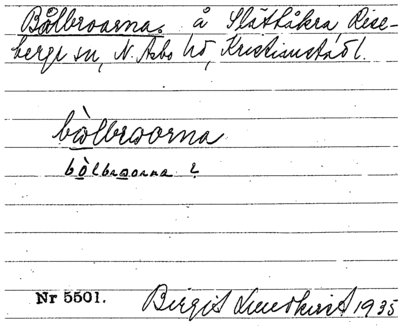 Bålbroarna. å Slättåkra Rise-
berga sn, N. Åsbo hd, Kristianst.l.
bòlbroorna
bòlbroorna ?
Nr 5501. Birgit Lundkvist 1935